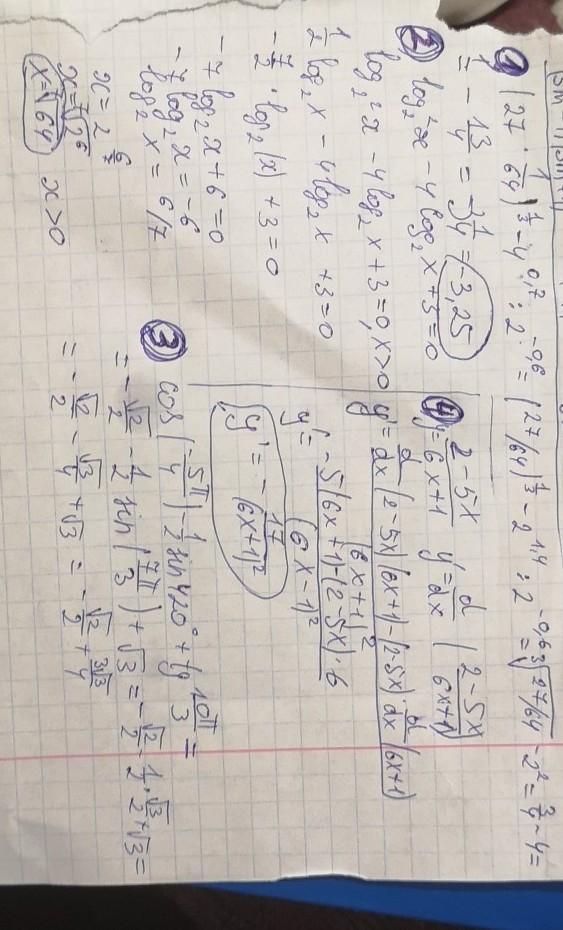 ① (27 · 1/64)^(1/3) - 4^0,7 : 2^-0,6 = (27/64)^(1/3) - 2^1,4 : 2^-0,6 = ∛27/64 - 2² = 3/4 - 4 =
= - 13/4 = -3 1/4 = -3,25
② log₂²x - 4log₂x + 3 = 0
log₂²x - 4log₂x + 3 = 0, x > 0
1/2 log₂x - 4log₂x + 3 = 0
- 7/2 · log₂(x) + 3 = 0
-7log₂x + 6 = 0
-7log₂x = -6
log₂x = 6/7
x = 2^(6/7)
x = ⁷√2⁶
x = ⁷√64 x > 0
④ y = (2-5x)/(6x+1) y = d/dx ((2-5x)/(6x+1))
y' = (d/dx (2-5x)(6x+1) - (2-5x) · d/dx (6x+1))/(6x+1)²
y' = (-5(6x+1) - (2-5x) · 6)/(6x-1)²
y' = - 17/(6x+1)²
③ cos(-5π/4) - 1/2 sin420° + tg 10π/3 =
= - √2/2 - 1/2 sin(7π/3) + √3 = - √2/2 - 1/2 · √3/2 + √3 =
= - √2/2 - √3/4 + √3 = - √2/2 + 3√3/4